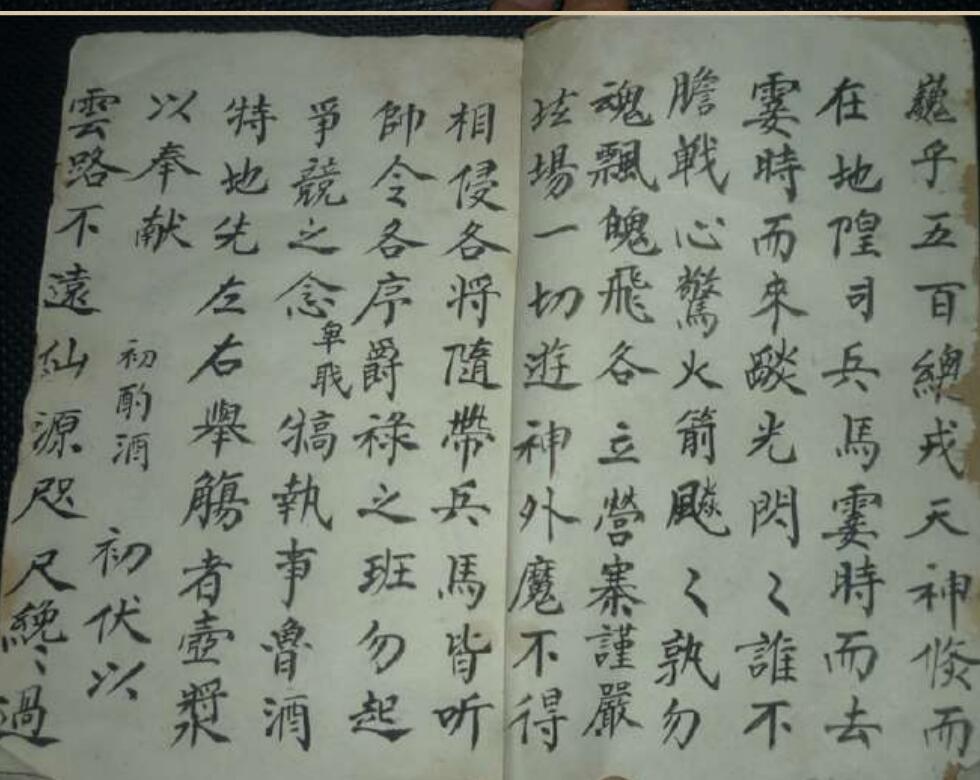 巍乎五百總戎天神倐而
在地隍司兵馬霎時而去
霎時而來燄光閃〻誰不
膽戰心驚火箭飈〻孰勿
魂飄魄飛各立營寨謹嚴
壇場一切遊神外魔不得
相侵各將隨帶兵馬皆听
帥令各序爵祿之班勿起
爭競之念犒執事魯酒
特地先左右舉觴者壺漿
以奉献 初酌酒 初伏以
雲路不遠仙源咫尺纔〻過